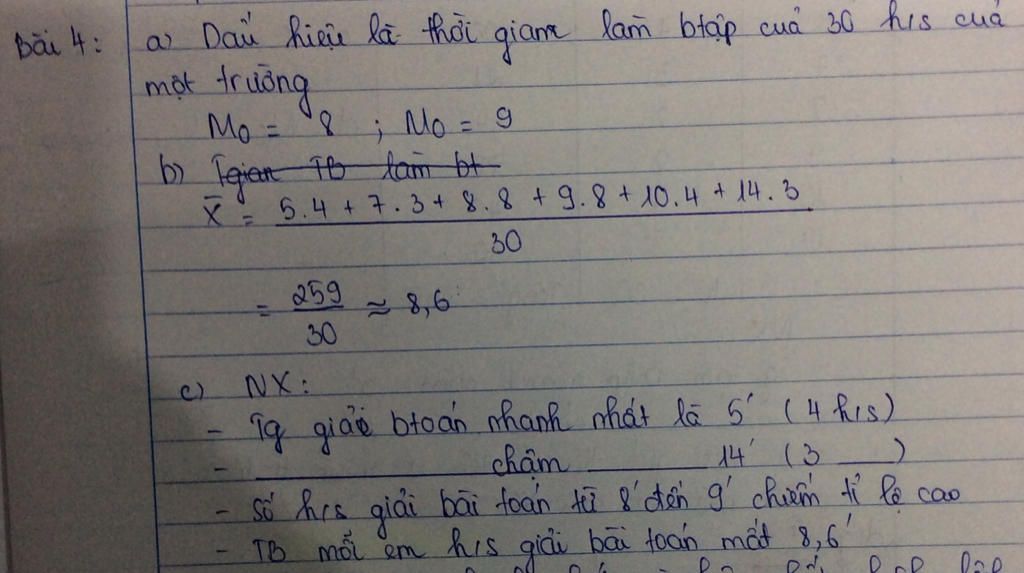 Bài 4: a) Dấu hiệu là thời gian làm btập của 30 h/s của
một trường
M0 = 8 ; M0 = 9
b) Tgian TB làm bt
X̄ = 5.4 + 7.3 + 8.8 + 9.8 + 10.4 + 14.3
30
= 259 ≈ 8,6
30
c) NX:
- Tg giải btoán nhanh nhất là 5' (4 h/s)
- ______ chậm ______ 14' (3 ___)
- Số h/s giải bài toán từ 8' đến 9' chiếm tỉ lệ cao
- TB mỗi em h/s giải bài toán mất 8,6'